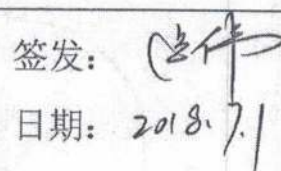 签发：
日期：2018.7.1